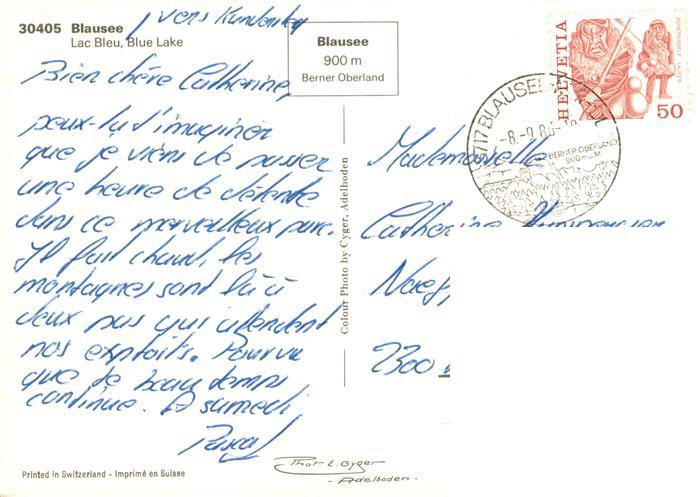 30405 Blausee
Lac Bleu, Blue Lake
vers Kandersteg
Blausee
900 m
Berner Oberland
HELVETIA
50
3717 BLAUSEE
-8.-9.86
BERNER OBERLAND
900 m ü. M
Bien chère Catherine,
peux-tu t'imaginer
que je viens de passer
une heure de détente
dans ce merveilleux parc.
Il fait chaud, les
montagnes sont là à
deux pas qui attendent
nos exploits. Pourvu
que le beau temps
continue. A samedi,
Pascal
Colour Photo by Gyger, Adelboden
Mademoiselle
Catherine
2300
Printed in Switzerland - Imprimé en Suisse
Phot E. Gyger
- Adelboden -